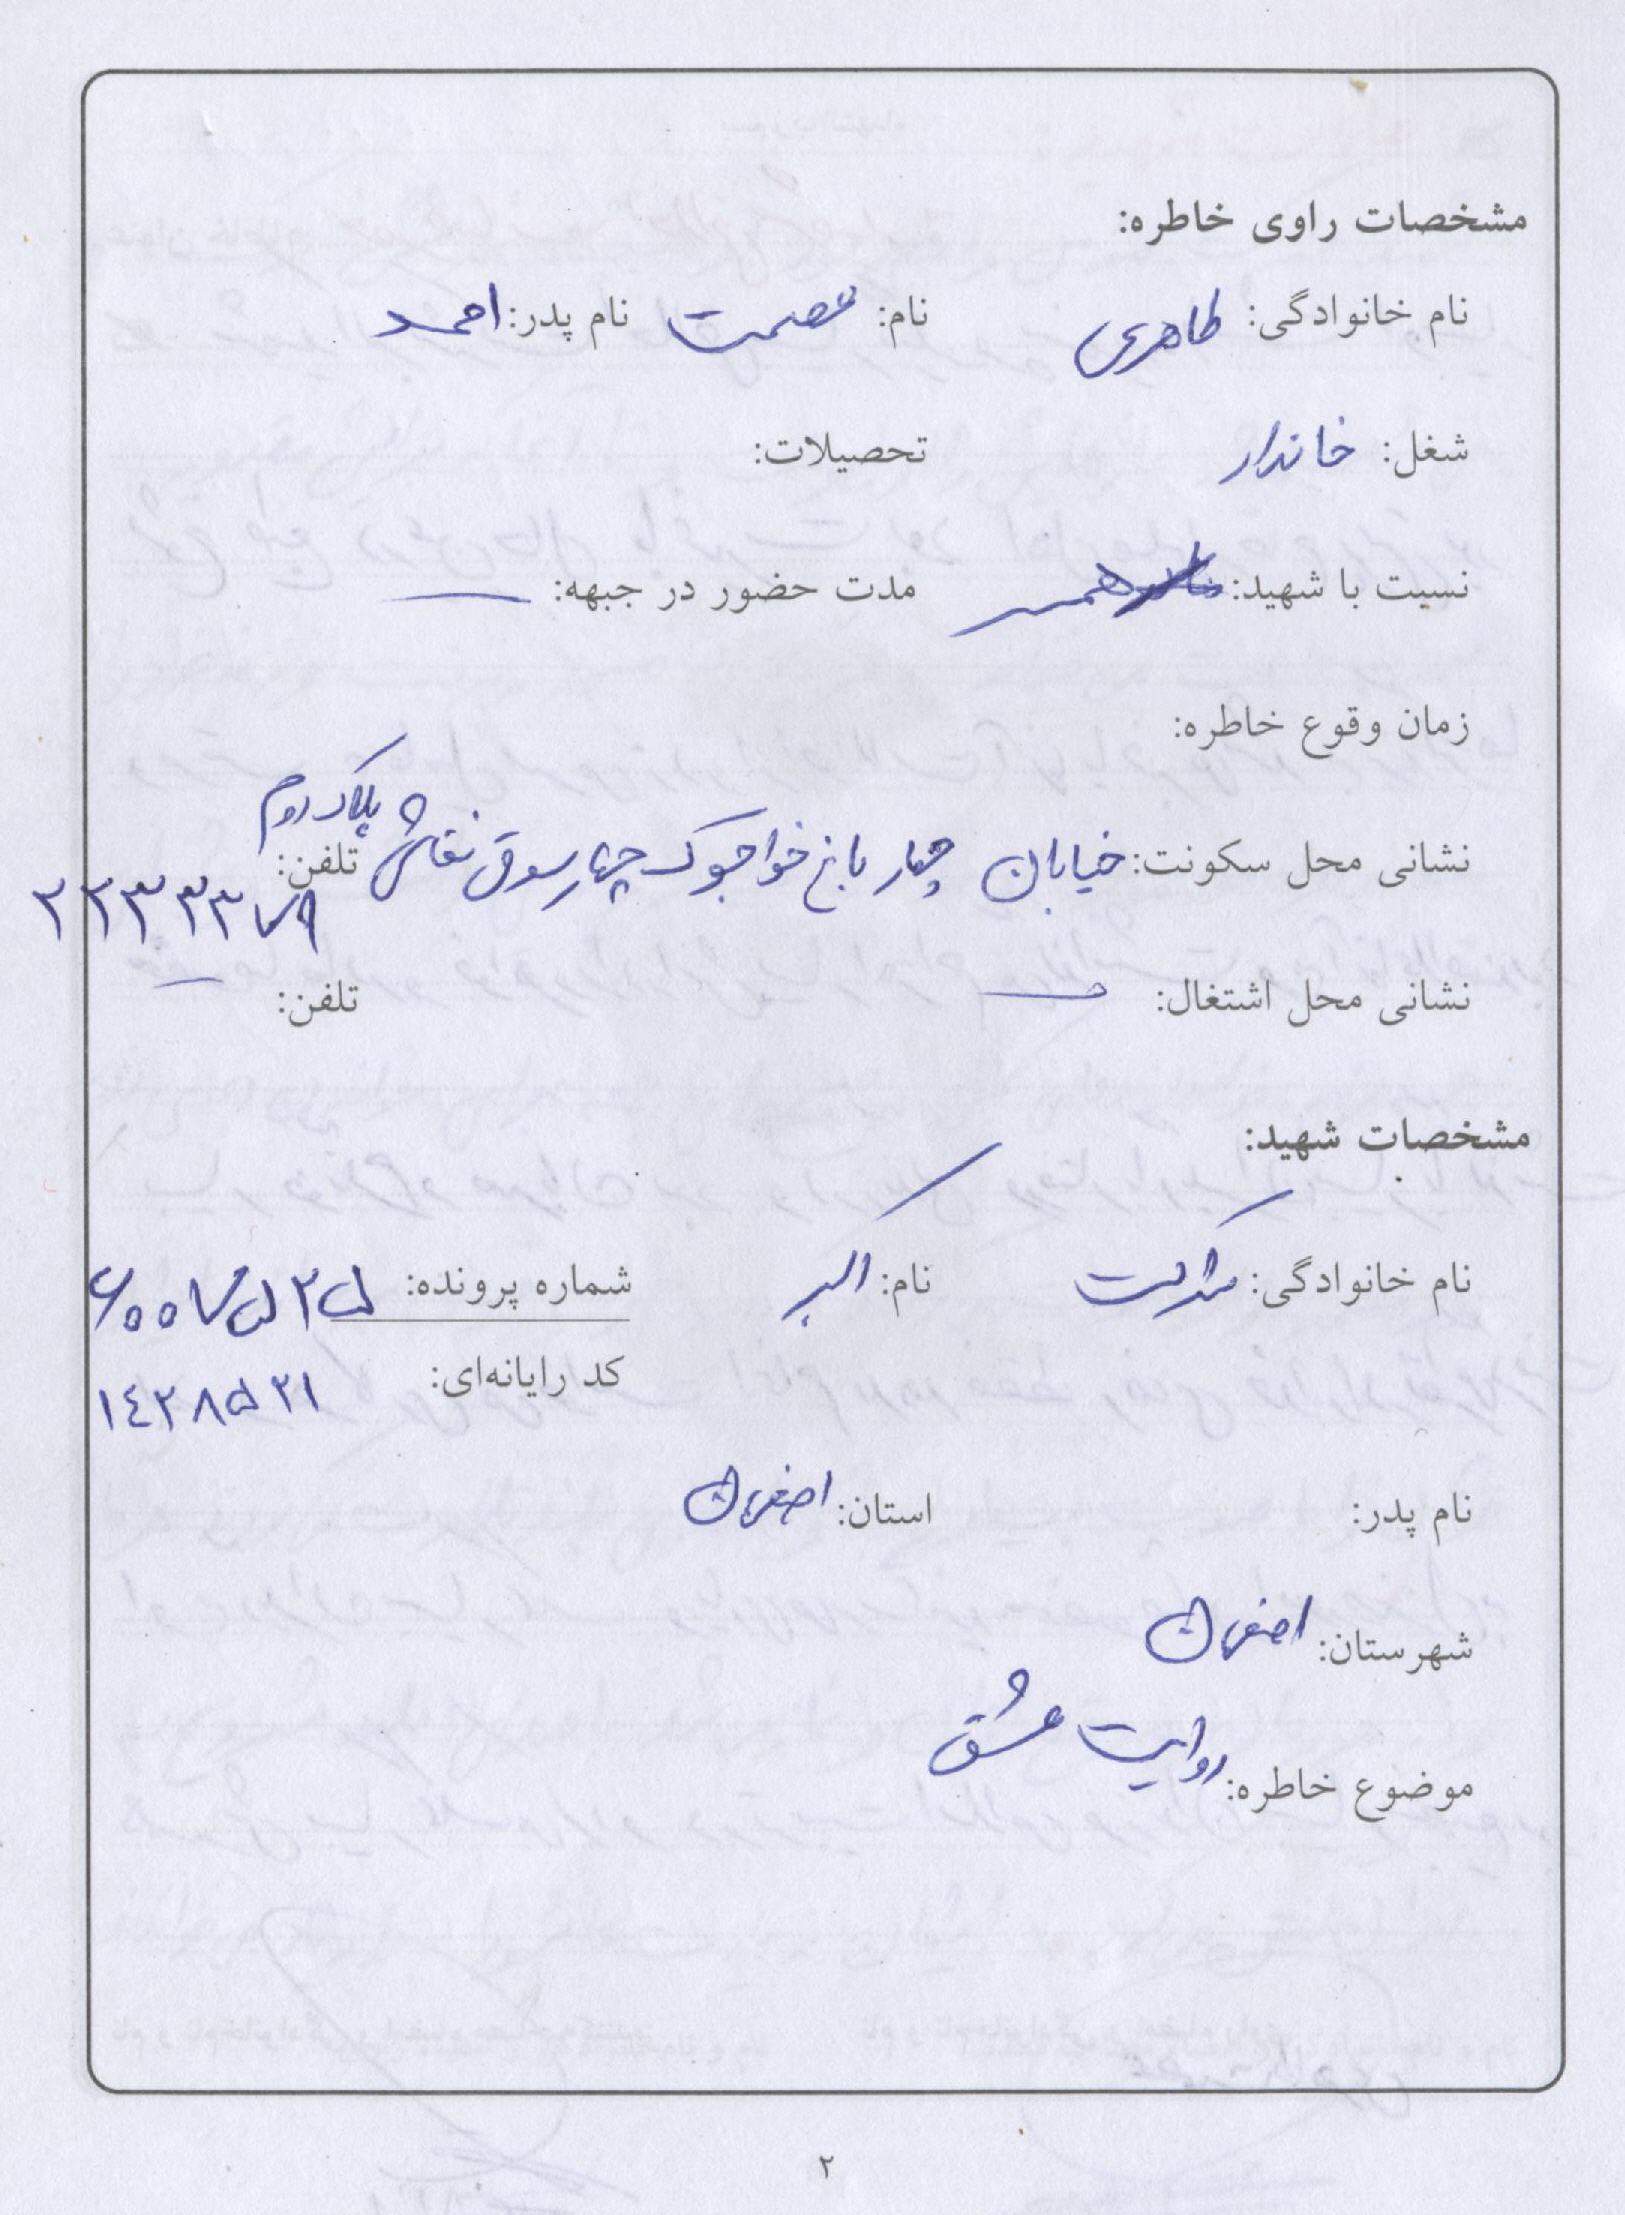 مشخصات راوی خاطره:
نام خانوادگی: طاهری نام: عصمت نام پدر: احمد
شغل: خاندار تحصیلات:
نسبت با شهید: همسر مدت حضور در جبهه: —
زمان وقوع خاطره:
پلاک دوم
نشانی محل سکونت: خیابان چهار باغ خواجو ک چهارسوق نقاشی تلفن:
۲۲۳۳۳۷۹
نشانی محل اشتغال: — تلفن: —
مشخصات شهید:
نام خانوادگی: نام: اکبر شماره پرونده: ۶۰۰۷۵۲۵
کد رایانه‌ای: ۱۴۲۸۵۲۱
نام پدر: استان: اصفهان
شهرستان: اصفهان
موضوع خاطره: روایت عشق
۲